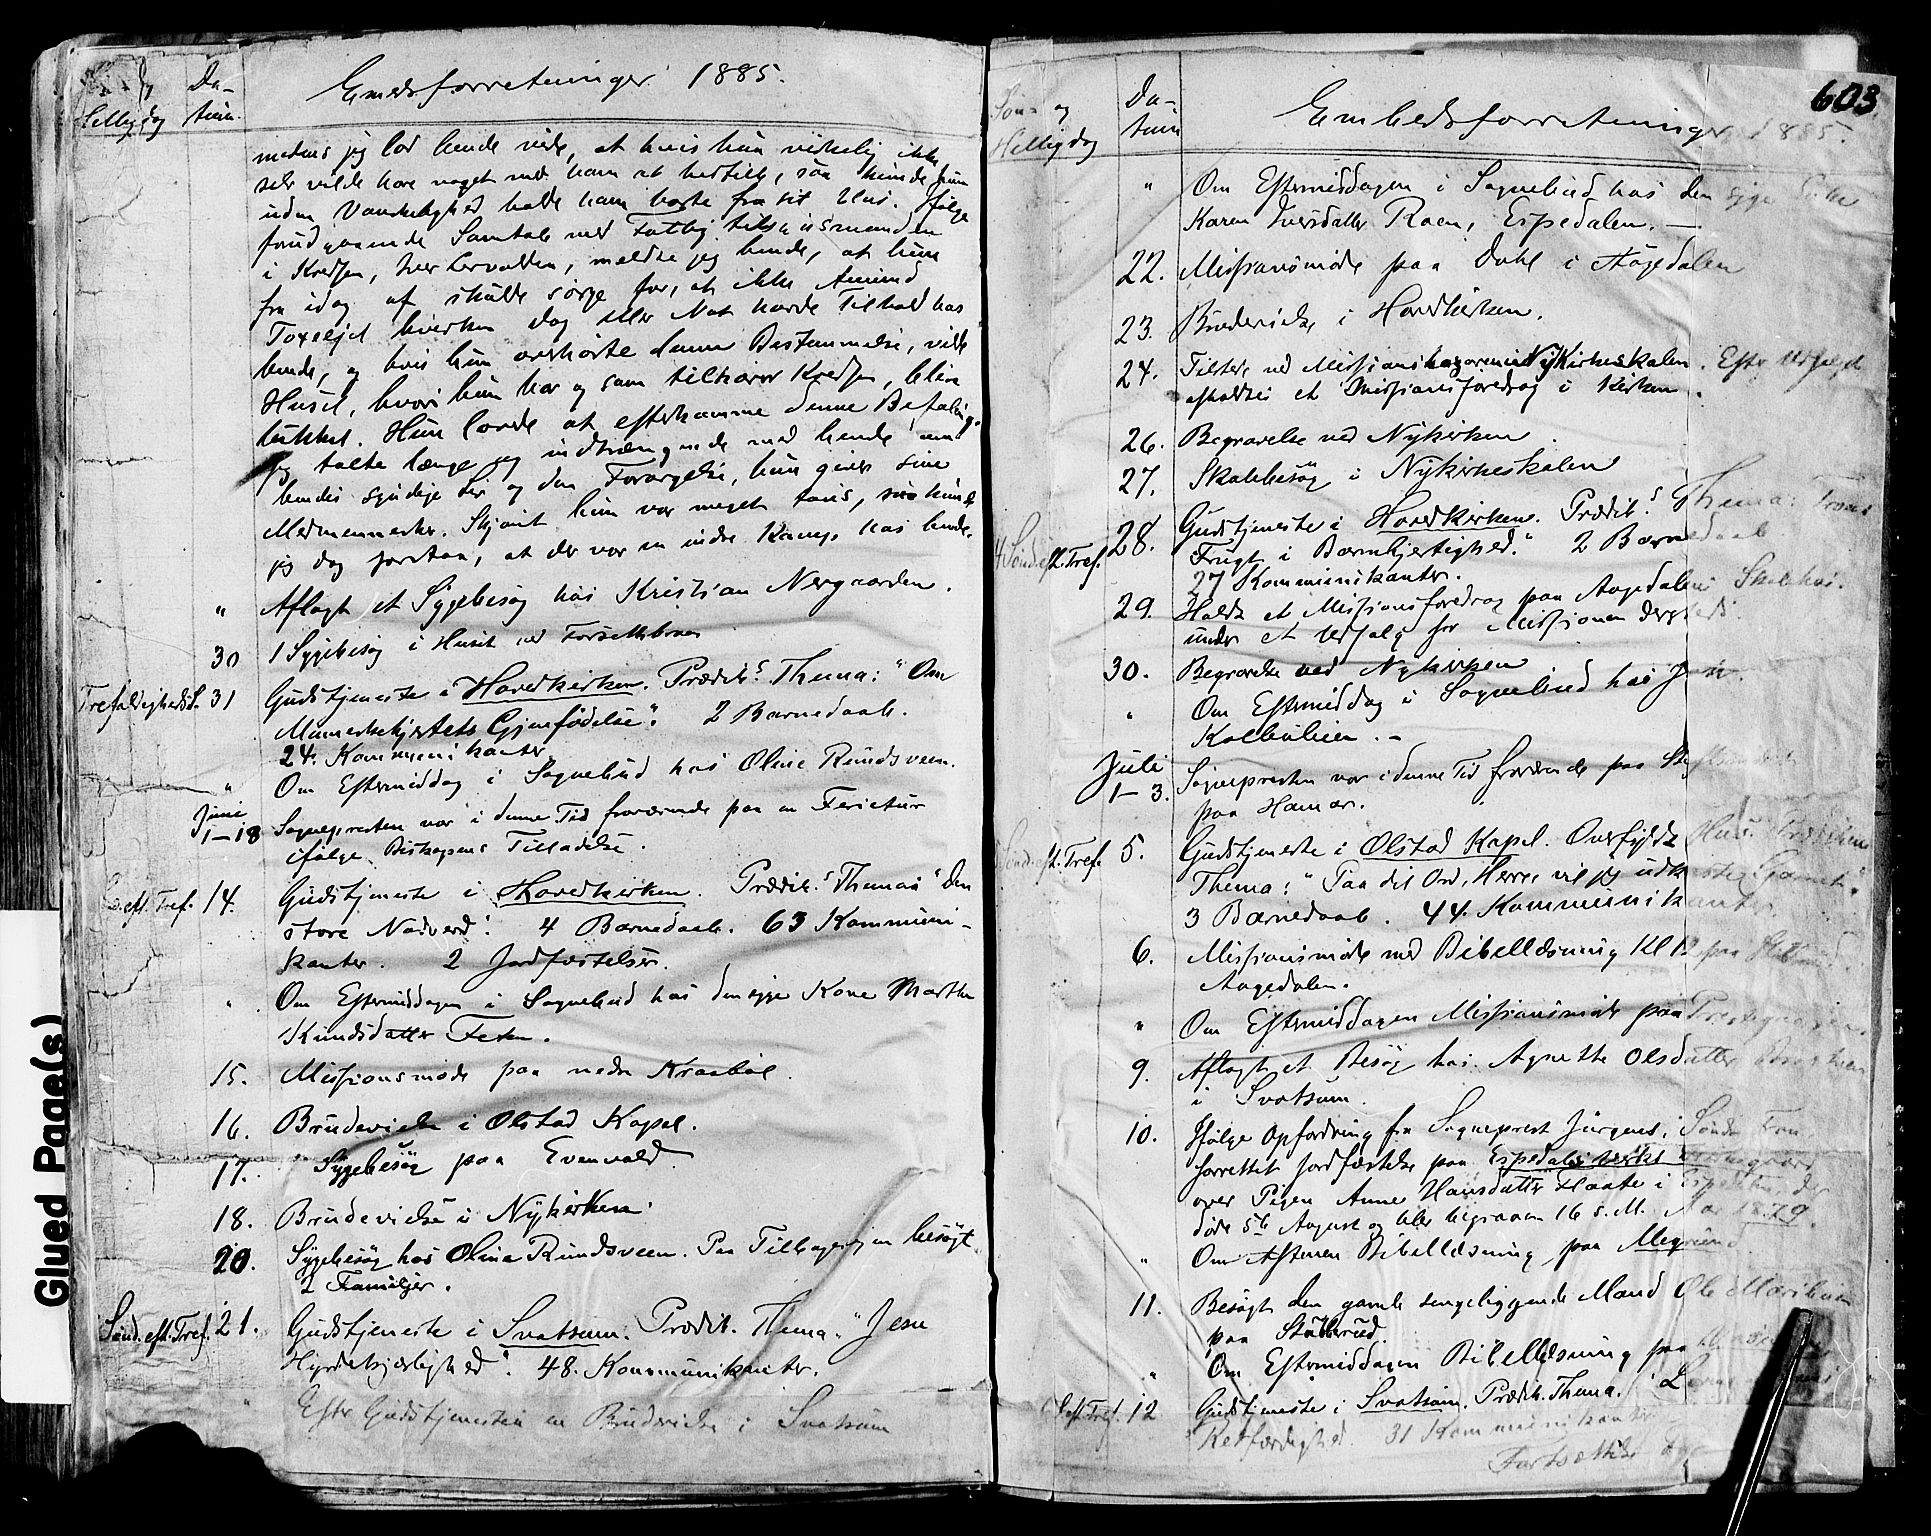 Da-
Helligdag tum.
Embedsforretninger 1885.
medens jeg lod hende vide, at hvis hun virkelig ikke
selv vilde have noget med ham at bestille, saa kunde hun
uden Vanskelighed holde ham borte fra sit Hus. Ifølge
forudgaaende Samtale med Fattigtilsynsmanden
i Kredsen, meldte jeg hende, at hun
fra idag af skulde sørge for, at ikke Amund
hverken Dag eller Nat havde Tilhold hos
hende, og hvis hun overhørte denne Bestemmelse, vilde
Huset, hvori hun bor og som tilhører Kredsen, blive
lukket. Hun lovde at efterkomme denne Befaling.
Jeg talte længe og indtrængende med hende om
hendes syndige Liv og den Forargelse, hun giver sine
Medmennesker. Skjønt hun var meget taus, saa kunde
jeg dog forstaa, at der var en indre Kamp hos hende.
" Aflagt et Sygebesøg hos Kristian Nergaarden.
30 1 Sygebesøg i Huset ved
Trefoldigheds S. 31 Gudstjeneste i Hovedkirken. Prædik.s Thema: "Om
Menneskehjertets Gjenfødelse". 2 Barnedaab.
24. Kommunikanter
" Om Eftermiddag i Sognebud hos Oline Rundsveen.
Juni
1-18 Sognepresten var i denne Tid fraværende paa en Ferietur
ifølge Biskopens Tilladelse.
2 S. eft. Tref. 14. Gudstjeneste i Hovedkirken. Prædik.s Thema: "Den
store Nadverd". 4 Barnedaab. 63 Kommuni-
kanter. 2 Jordfæstelser.
" Om Eftermiddagen i Sognebud hos den syge Kone Marthe
Knudsdatter Feten.
15. Missionsmøde paa nedre Kraabøl.
16. Brudevielse i Olstad Kapel.
17. Sygebesøg paa Evenvold.
18. Brudevielse i Nykirken.
20. Sygebesøg hos Oline Rundsveen. Paa Tilbageveien besøgt
2 Familier.
Sønd. eft. Tref. 21. Gudstjeneste i Svatsum. Prædik. Thema: "Jesu
Hyrdekjærlighed". 48. Kommunikanter.
" Efter Gudstjenesten en Brudevielse i Svatsum
603
Søn- og
Helligdag
Da-
tum
Embedsforretninger 1885.
" Om Eftermiddagen i Sognebud hos den syge
Karen Iversdatter Roen, Espedalen. —
22. Missionsmøde paa Dahl i Aagedalen
23. Brudevielse i Hovedkirken.
24. Tilstede ved Missions i Nykirkeskolen. Efter
afholdtes et Missionsforedrag i Kirken.
26. Begravelse ved Nykirken.
27. Skolebesøg i Nykirkeskolen
4 Sønd. eft. Tref. 28. Gudstjeneste i Hovedkirken. Prædik.s Thema: Troens
Frugt i Barmhjertighed." 2 Barnedaab
27 Kommunikanter.
29. Holdt et Missionsforedrag paa Aagedalens Skolehus
under et Udsalg for Missionen dersteds.
30. Begravelse ved Nykirken
" Om Eftermiddag i Sognebud hos
Kolbulien. –
Juli
1-3. Sognepresten var i denne Tid fraværende paa
paa Hamar.
Sønd. eft. Tref. 5. Gudstjeneste i Olstad Kapel. Overfyldt Hus. Prædiken
Thema: "Paa dit Ord, Herre, vil jeg udkaste Garnet".
3 Barnedaab. 44. Kommunikanter.
6. Missionsmøde med Bibellæsning Kl 12 paa
Aagedalen.
" Om Eftermiddagen Missionsmøde paa
9. Aflagt et Besøg hos Agnethe Olsdatter
i Svatsum.
10. Ifølge Opfordring fra Sogneprest Jürgens i Søndre Fron
forrettet Jordfæstelse paa Espedals Verks Kirkegaard
over Pigen Anne Hansdatter i Espedalen, der
døde 5te August og blev begraven 16 s. M. Aar 1879.
" Om Aftenen Bibellæsning paa Megrund
11. Besøgt den gamle sengeliggende Mand Ole
paa Stubberud.
" Om Eftermiddagen Bibellæsning paa
6 S. eft. Tref. 12 Gudstjeneste i Svatsum. Prædik. Thema:
Retfærdighed. 31 Kommunikanter
Fortsættes
Glued Page(s)